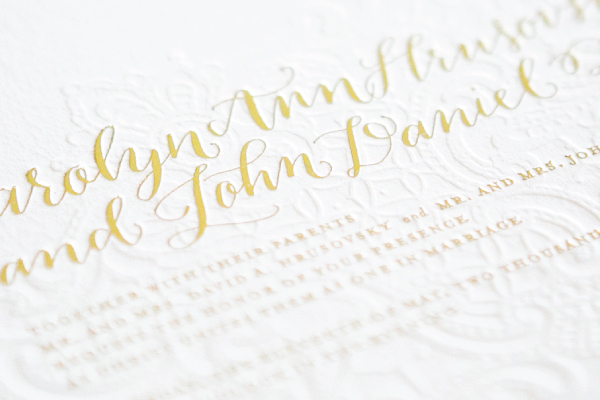 arolyn Ann Hrusovs
and John Daniel
TOGETHER WITH THEIR PARENTS
MR. AND MRS. DAVID A. HRUSOVSKY and MR. AND MRS. JOH
REQUEST THE HONOR OF YOUR PRESENCE
AS CHRIST UNITES THEM AS ONE IN MARRIAGE
OF MAY, TWO THOUSAND